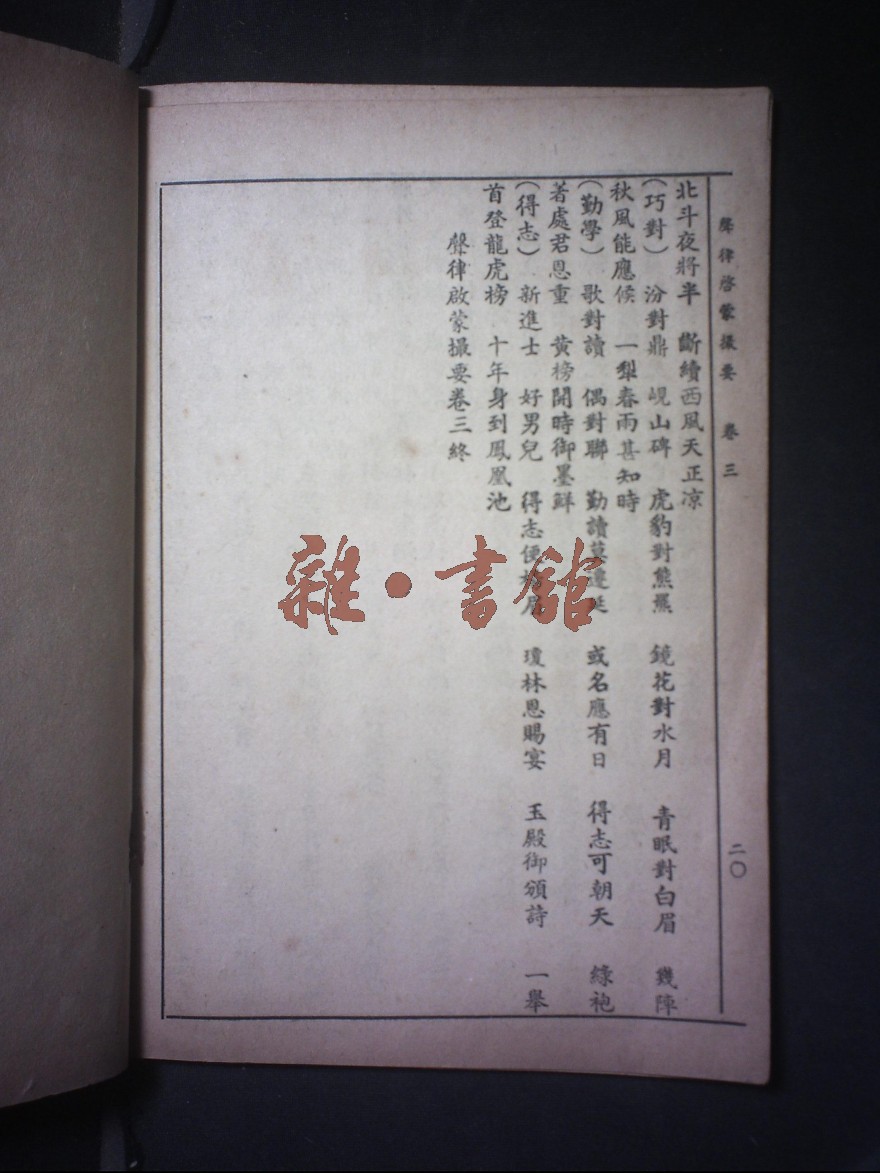 聲律啓蒙撮要 卷三 二〇
北斗夜將半 斷續西風天正凉
(巧對) 汾對鼎 峴山碑 虎豹對熊羆 鏡花對水月 青眼對白眉 幾陣
秋風能應候 一犁春雨甚知時
(勤學) 歌對讀 偶對聯 勤讀莫遷延 或名應有日 得志可朝天 綠袍
著處君恩重 黄榜開時御墨鮮
(得志) 新進士 好男兒 得志便 眉 瓊林恩賜宴 玉殿御頒詩 一舉
首登龍虎榜 十年身到鳳凰池
聲律啟蒙撮要卷三終
雜·書館